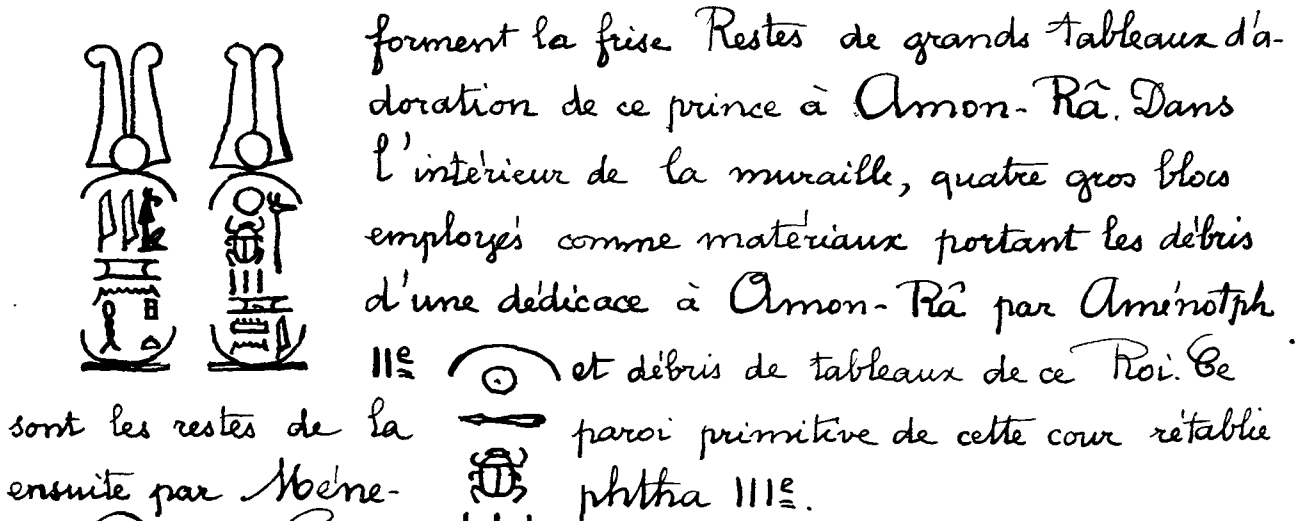 forment la frise Restes de grands tableaux d'a-
doration de ce prince à Amon-Râ. Dans
l'intérieur de la muraille, quatre gros blocs
employés comme matériaux portant les débris
d'une dédicace à Amon-Râ par Aménotph
IIe et débris de tableaux de ce Roi. Ce
sont les restes de la paroi primitive de cette cour rétablie
ensuite par Méne- phtha IIIe.